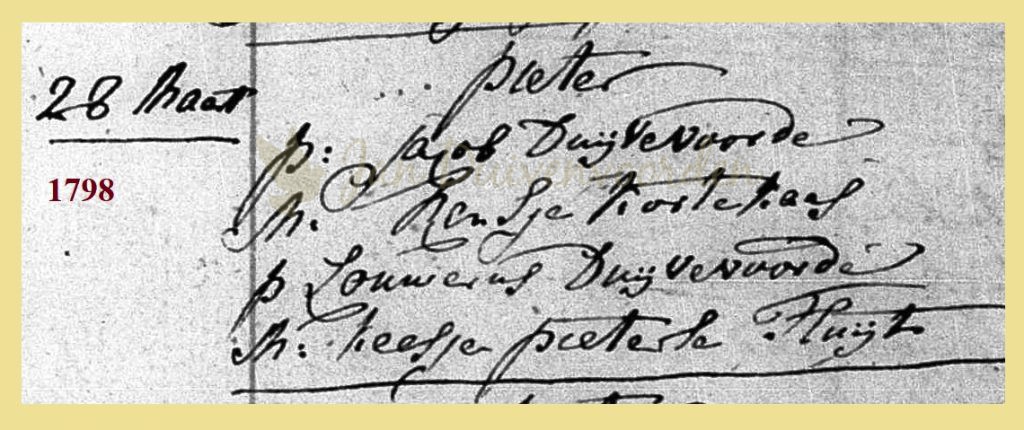 28 Maart
1798
... pieter
p: Jacob Duijvevoorde
M: Kensje Kortekaas
p Louwerus Duijvevoorde
M: Keesje pieterse Fluijt